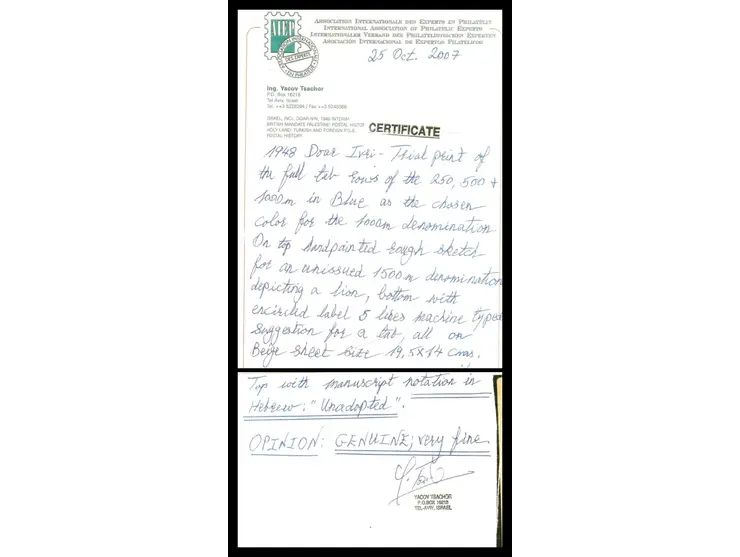 AIEP
ASSOCIATION INTERNATIONALE DES EXPERTS EN PHILATELIE
INTERNATIONAL ASSOCIATION OF PHILATELIC EXPERTS
INTERNATIONALER VERBAND DER PHILATELISTISCHEN EXPERTEN
ASOCIACIÓN INTERNACIONAL DE EXPERTOS FILATÉLICOS
25 Oct. 2007
Ing. Yacov Tsachor
P.O. Box 16218
Tel Aviv, Israel
HOLY LAND: TURKISH AND FOREIGN P.O.S.
POSTAL HISTORY.
CERTIFICATE
1948 Doar Ivri - Trial print of
the full tab rows of the 250, 500 +
1000m in Blue as the chosen
color for the 1000m denomination
On top handpainted rough sketch
for an unissued 1500m denomination
depicting a lion, bottom with
encircled label 5 lines machine typed
suggestion for a tab, all on
Beige sheet size 19,5X14 cms.
Top with manuscript notation in
Hebrew: "Unadopted".
OPINION: GENUINE; very fine.
YACOV TSACHOR
P.O.BOX 16218
TEL-AVIV, ISRAEL